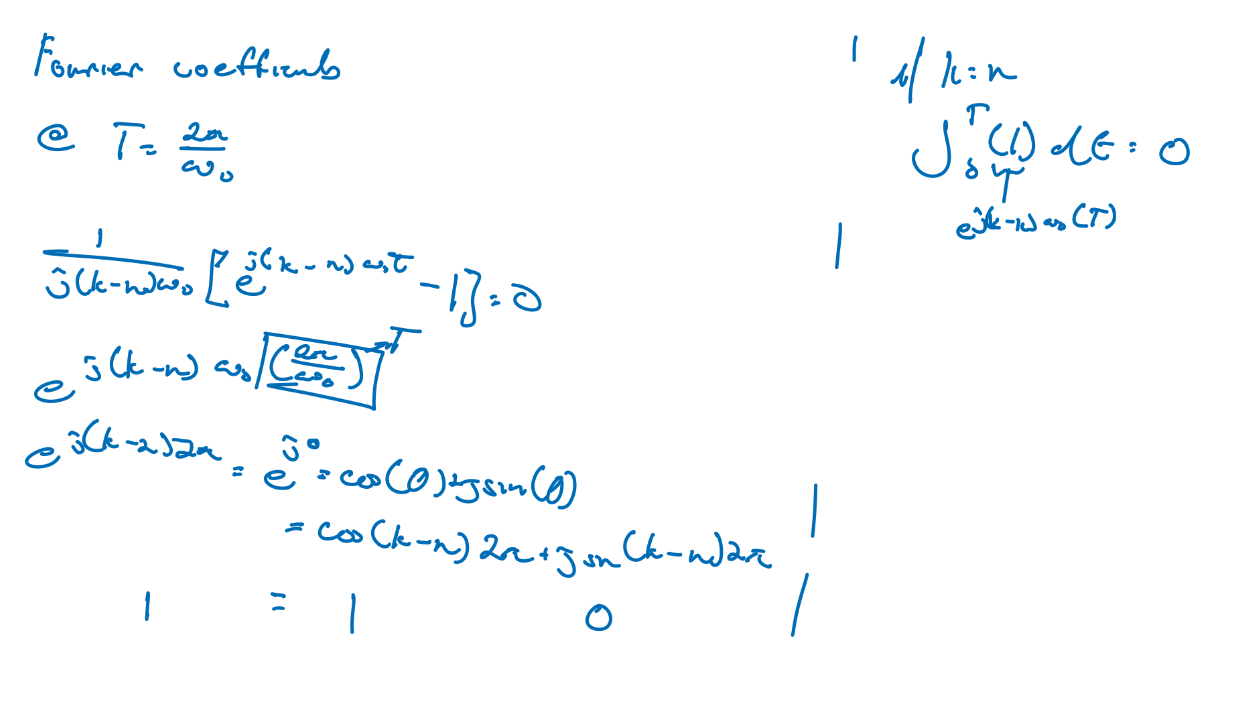 Fourier coefficients
@ T = 2π/ω₀
1/(j(k-n)ω₀) [e^(j(k-n)ω₀T) - 1] = 0
e^(j(k-n)ω₀(2π/ω₀)) → T
e^(j(k-n)2π) = e^(jθ) = cos(θ) + jsin(θ)
= cos(k-n)2π + jsin(k-n)2π
1 = 1 0
if k=n
∫₀ᵀ (1) dt = 0
e^(j(k-n)ω₀(T))